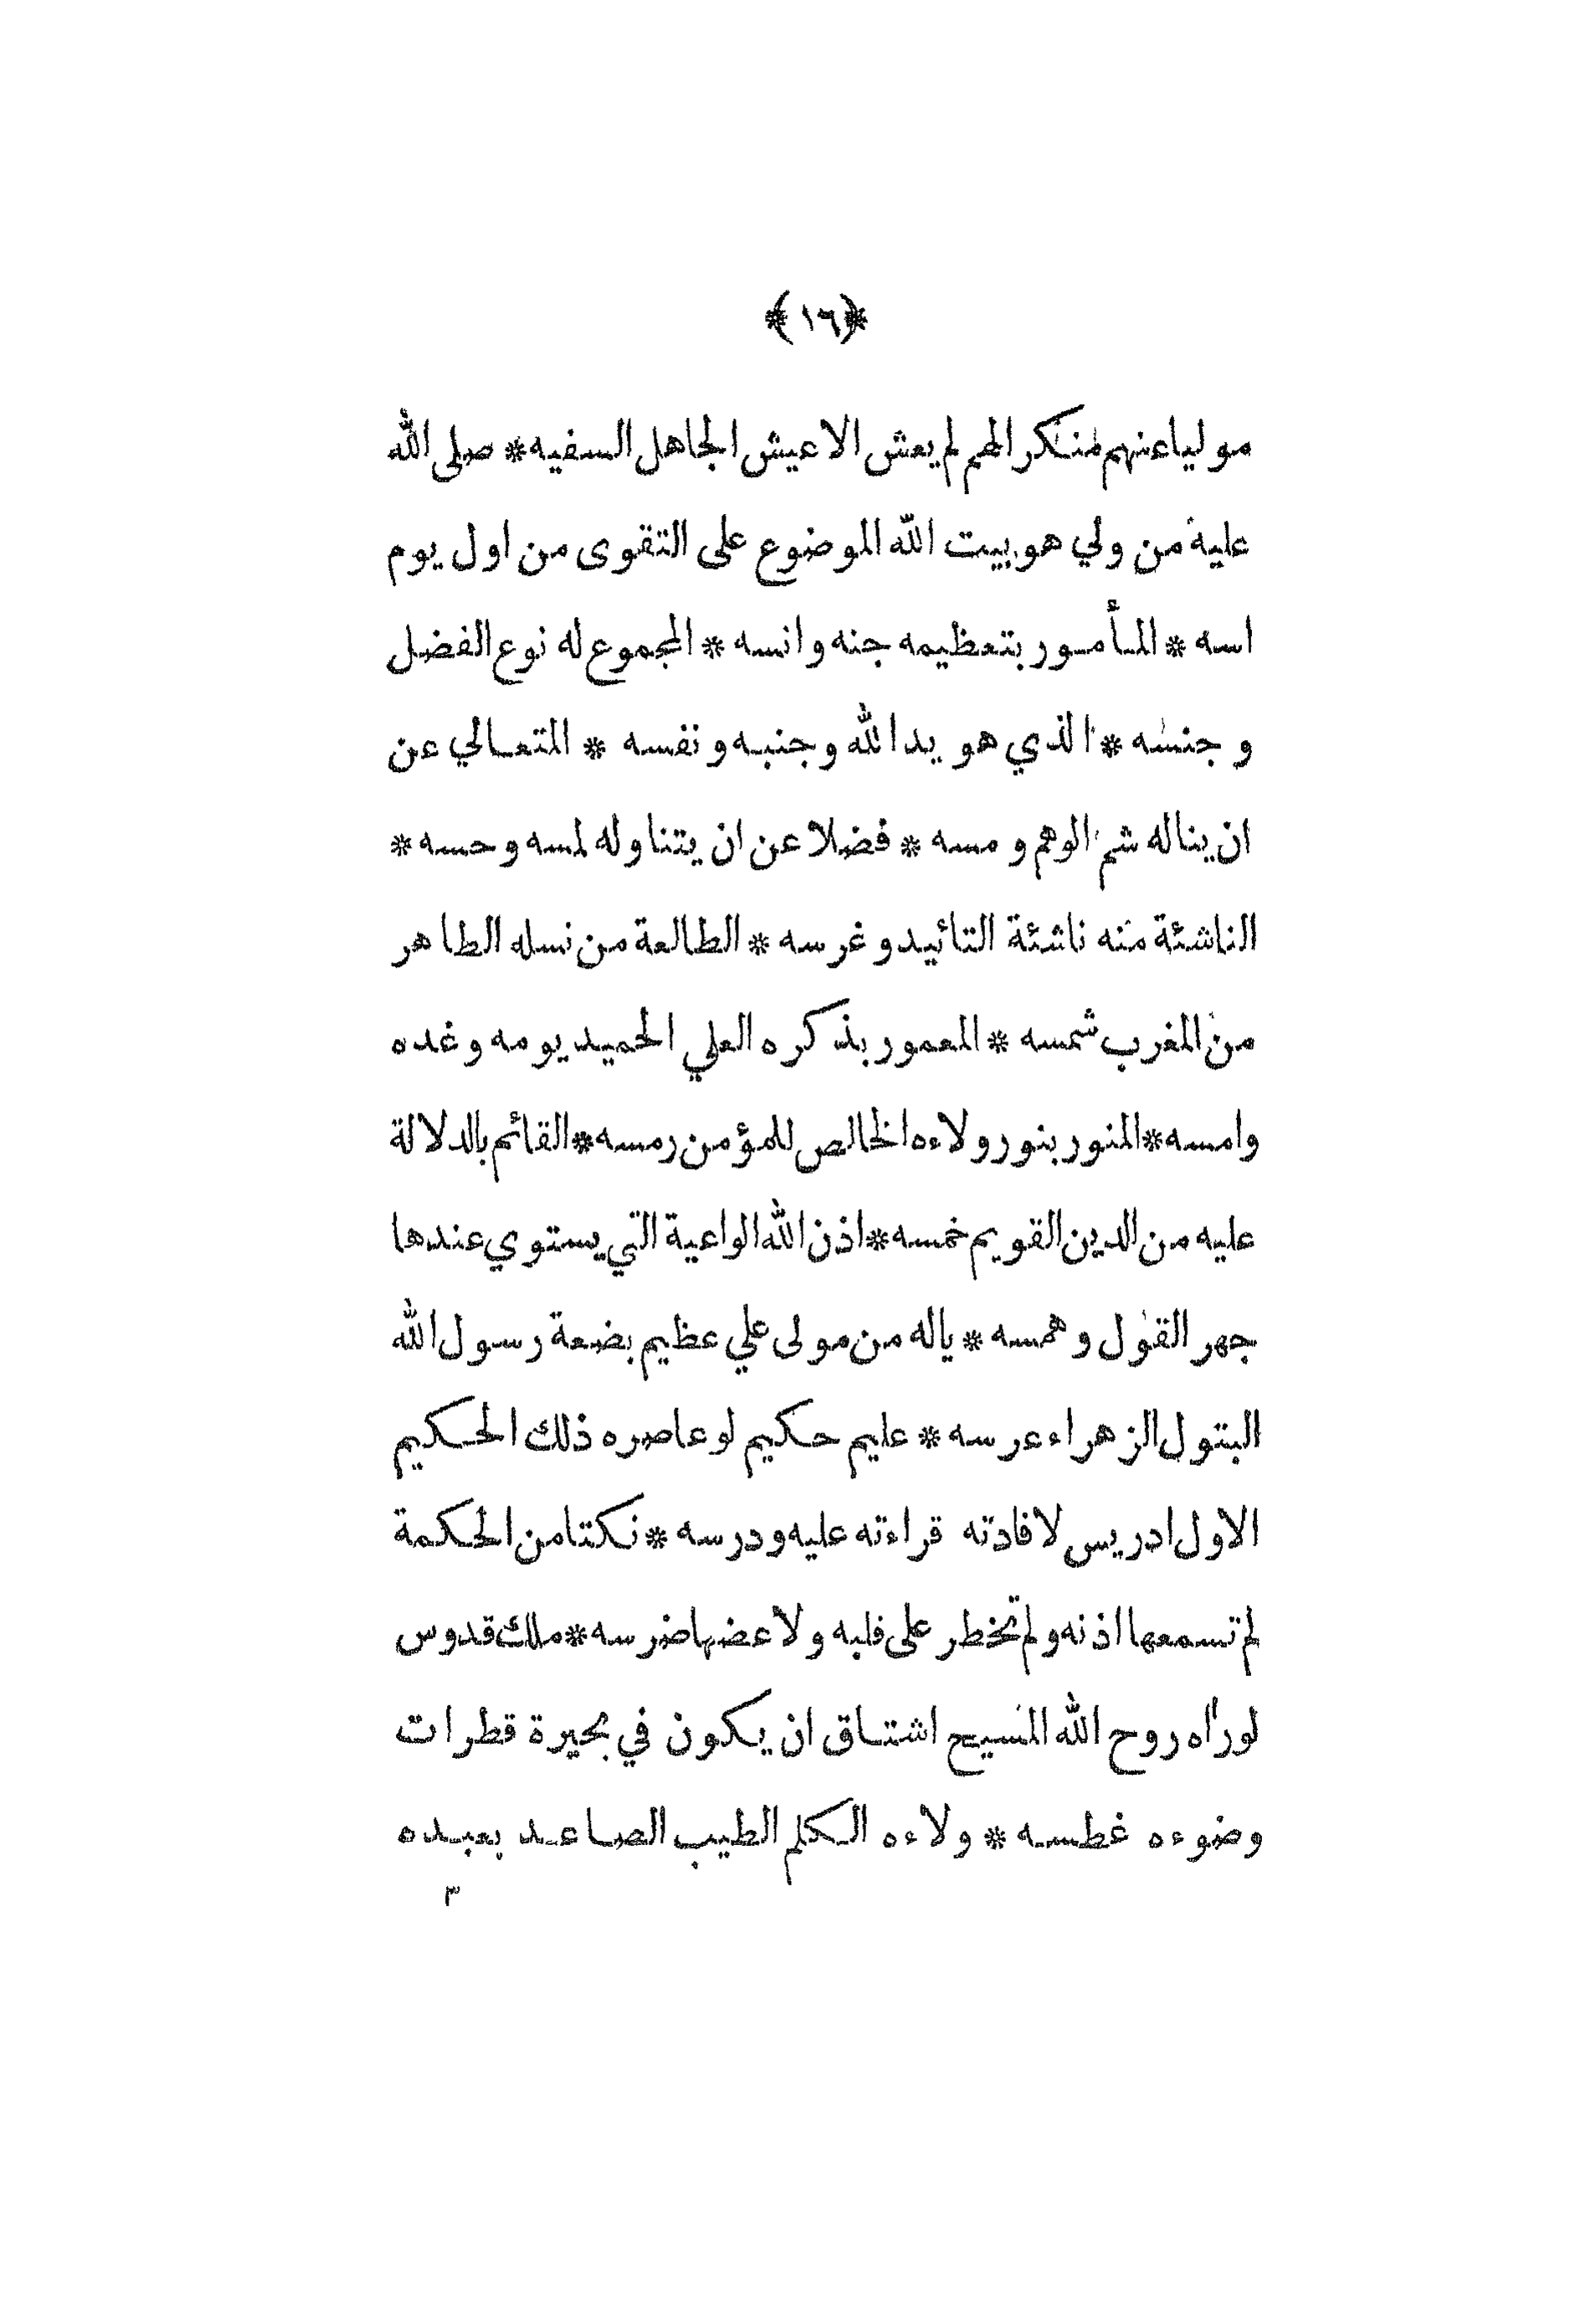 ﴿١٦﴾
موليا عنهم منكرا لهم لم يعش الا عيش الجاهل السفيه * صلى الله
عليه من ولي هو بيت الله الموضوع على التقوى من اول يوم
اسه * المأمور بتعظيمه جنه وانسه * المجموع له نوع الفضل
وجنسه * الذي هو يد الله وجنبه ونفسه * المتعالي عن
ان يناله شم الوهم ومسه * فضلا عن ان يتناوله لمسه وحسه *
الناشئة منه ناشئة التائيد وغرسه * الطالعة من نسله الطاهر
من المغرب شمسه * المعمور بذكره العلي الحميد يومه وغده
وامسه * المنور بنور ولاءه الخالص للمؤمن رمسه * القائم بالدلالة
عليه من الدين القويم خمسه * اذن الله الواعية التي يستوي عندها
جهر القول وهمسه * ياله من مولى علي عظيم بضعة رسول الله
البتول الزهراء عرسه * عليم حكيم لو عاصره ذلك الحكيم
الاول ادريس لافادته قراءته عليه ودرسه * نكتا من الحكمة
لم تسمعها اذنه ولم تخطر على قلبه ولا عضها ضرسه * ملك قدوس
لو رآه روح الله المسيح اشتاق ان يكون في بحيرة قطرات
وضوءه غطسه * ولاءه الكلم الطيب الصاعد بعبده
٣